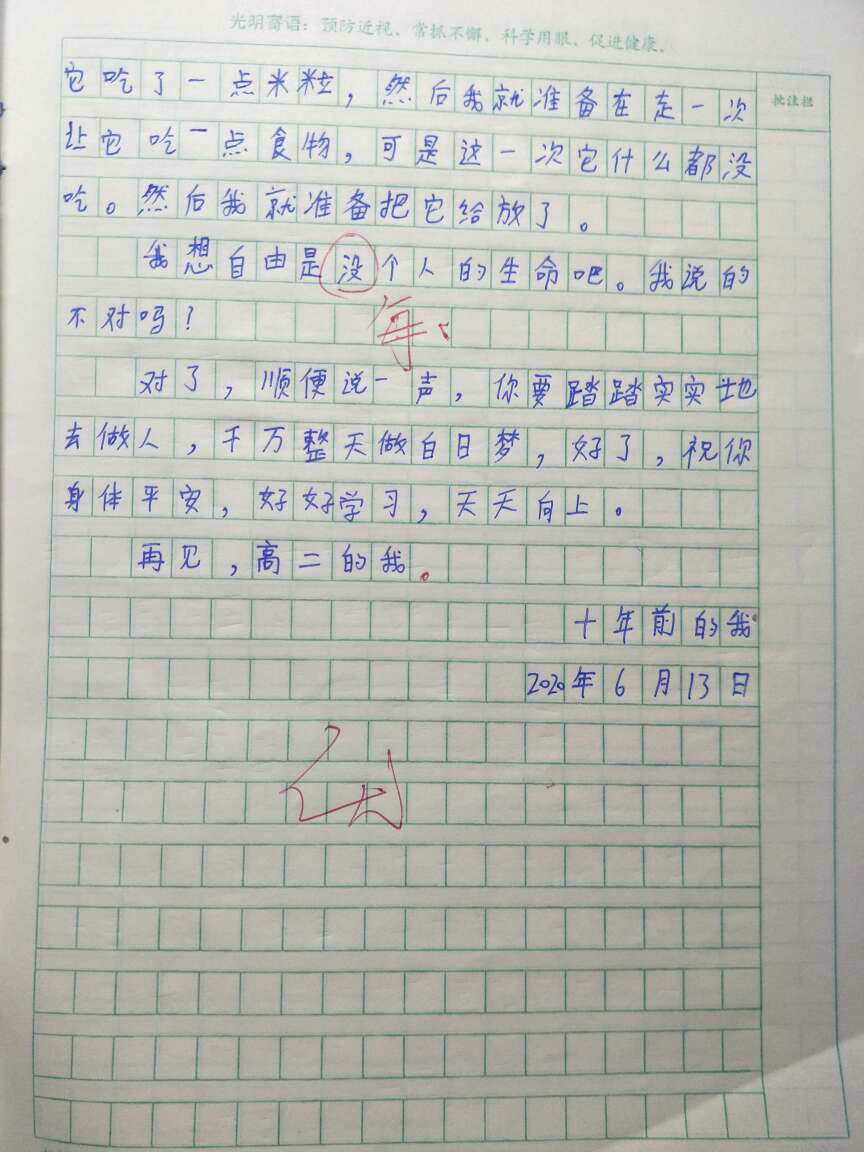 光明寄语：预防近视、常抓不懈、科学用眼、促进健康。
批注栏
它吃了一点米粒，然后我就准备在走一次
让它吃一点食物，可是这一次它什么都没
吃。然后我就准备把它给放了。
我想自由是没个人的生命吧。我说的
每
不对吗？
对了，顺便说一声，你要踏踏实实地
去做人，千万整天做白日梦，好了，祝你
身体平安，好好学习，天天向上。
再见，高二的我。
十年前的我
2020年6月13日